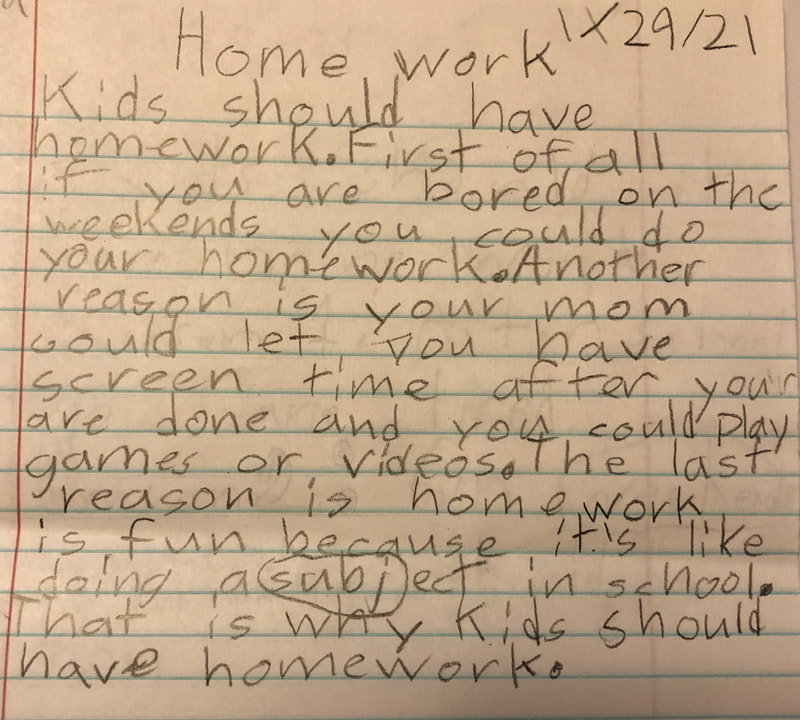 Home work 1X29/21
Kids should have
homework. First of all
if you are bored on the
weekends you could do
your homework. Another
reason is your mom
could let you have
screen time after your
are done and you could play
games or videos. The last
reason is home work
is fun because it's like
doing a subject in school.
That is why Kids should
have homework.